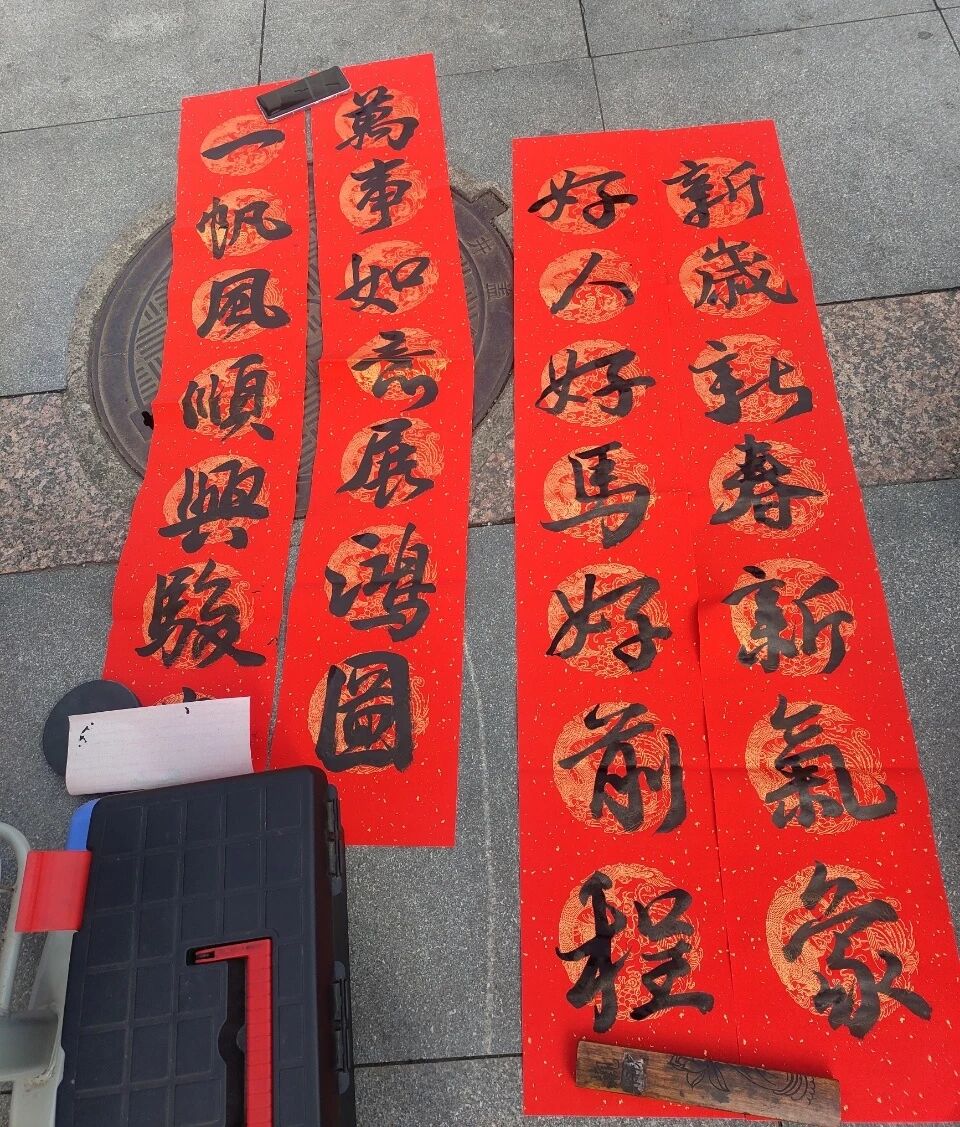 新歲新春新氣象
好人好馬好前程
萬事如意展鴻圖
一帆風順興駿